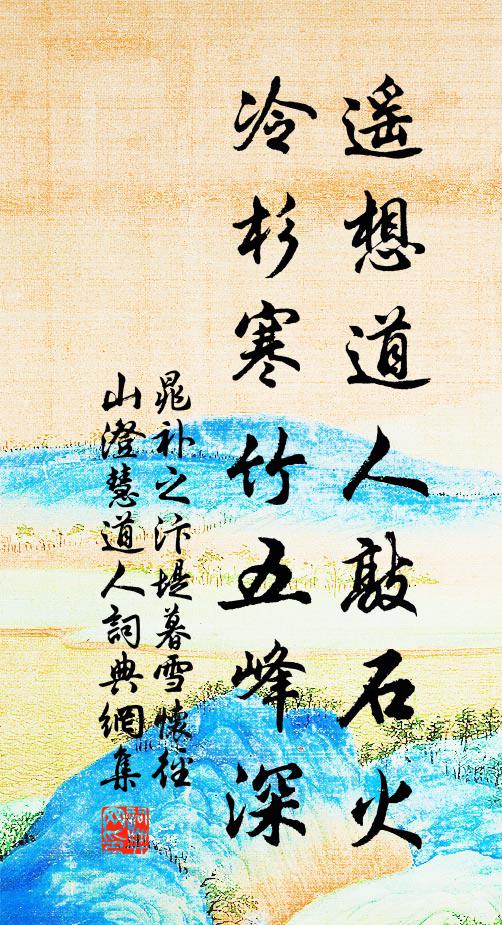 遥想道人敲石火
冷杉寒竹五峰深
晁补之汴堤暮雪懷徑
山澄慧道人詞典網集